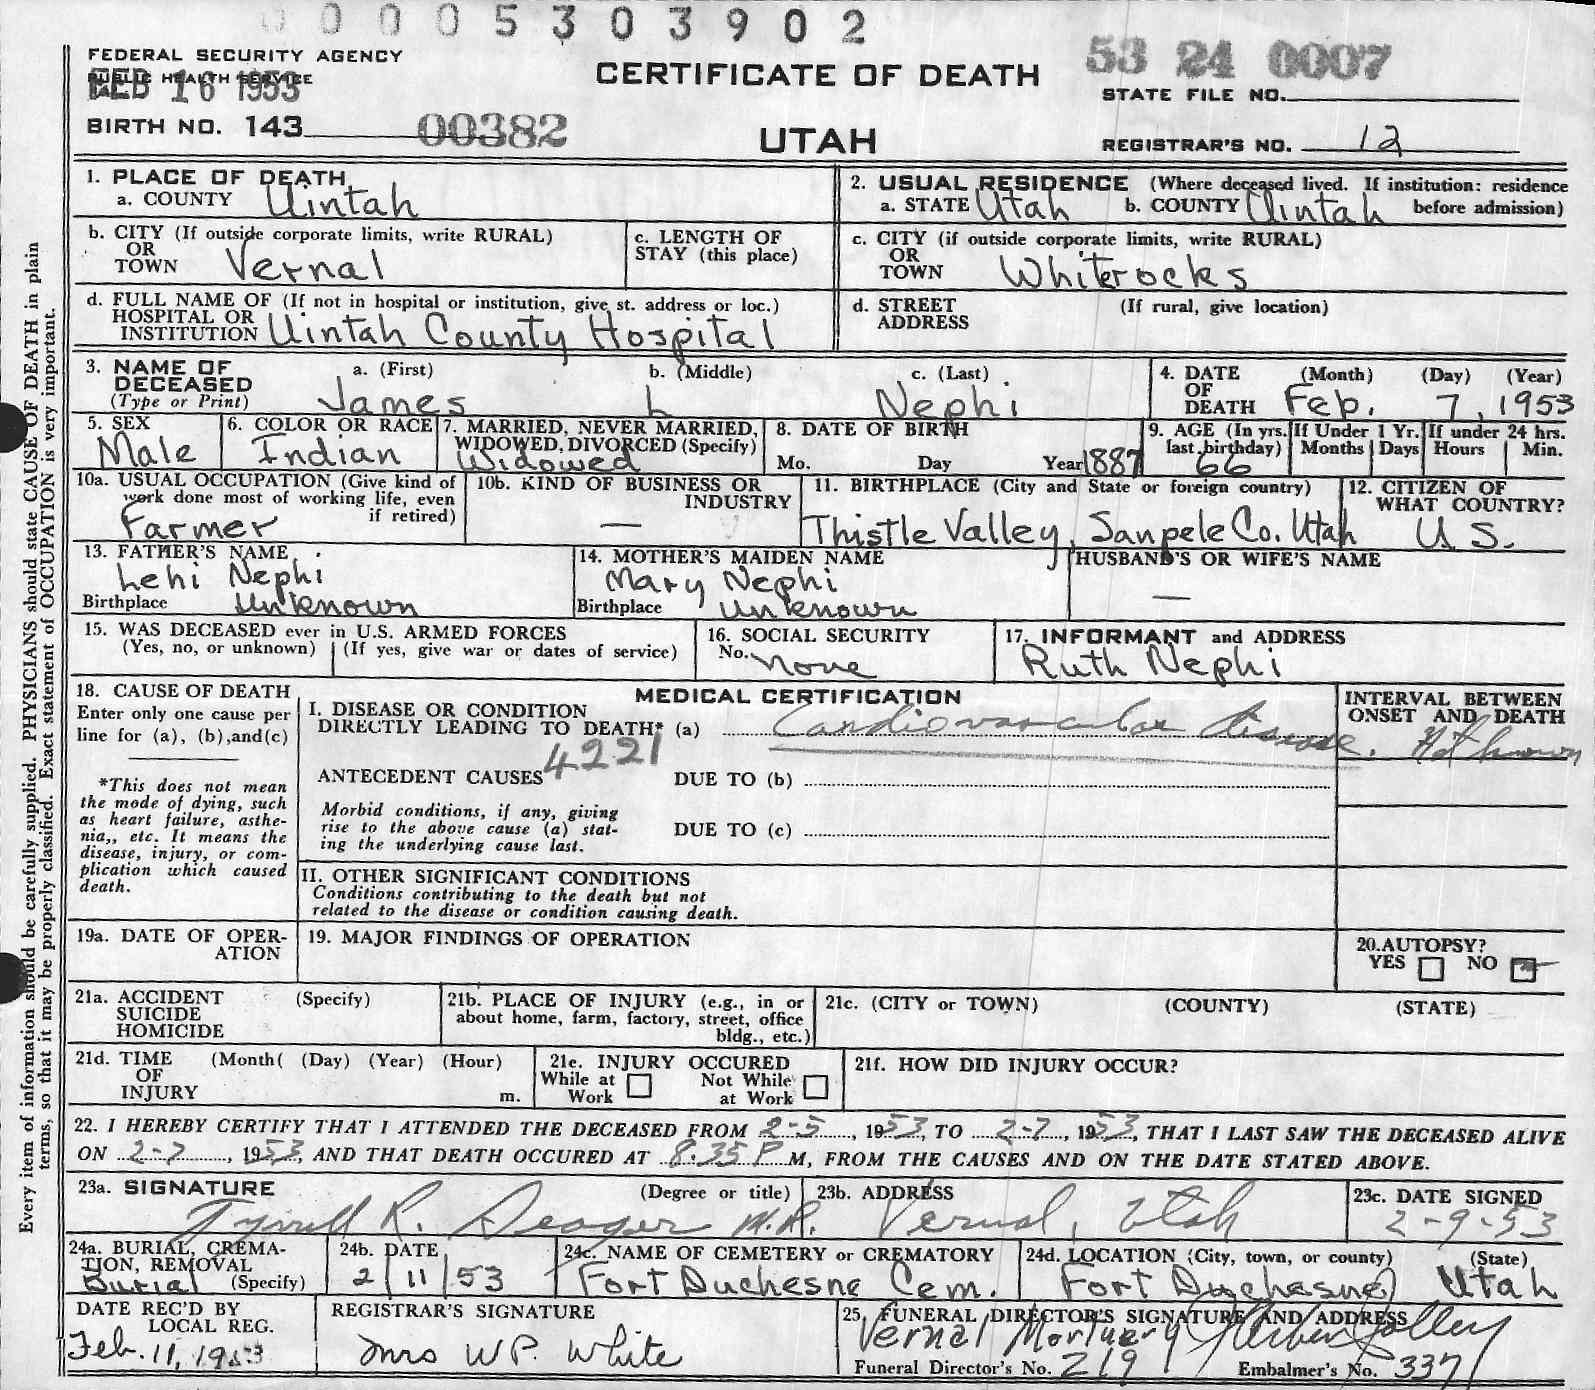 00005303902
FEDERAL SECURITY AGENCY
PUBLIC HEALTH SERVICE
FEB 16 1953
CERTIFICATE OF DEATH
53 24 0007
STATE FILE NO.
BIRTH NO. 143 00382
UTAH
REGISTRAR'S NO. 12
Every item of information should be carefully supplied. PHYSICIANS should state CAUSE OF DEATH in plain
terms, so that it may be properly classified. Exact statement of OCCUPATION is very important.
1. PLACE OF DEATH
a. COUNTY Uintah
2. USUAL RESIDENCE (Where deceased lived. If institution: residence
a. STATE Utah b. COUNTY Uintah before admission)
b. CITY (If outside corporate limits, write RURAL)
OR
TOWN Vernal
c. LENGTH OF
STAY (this place)
c. CITY (if outside corporate limits, write RURAL)
OR
TOWN Whiterocks
d. FULL NAME OF (If not in hospital or institution, give st. address or loc.)
HOSPITAL OR
INSTITUTION Uintah County Hospital
d. STREET (If rural, give location)
ADDRESS
3. NAME OF a. (First) b. (Middle) c. (Last)
DECEASED
(Type or Print) James L Nephi
4. DATE (Month) (Day) (Year)
OF
DEATH Feb. 7, 1953
5. SEX
Male
6. COLOR OR RACE
Indian
7. MARRIED, NEVER MARRIED,
WIDOWED, DIVORCED (Specify)
Widowed
8. DATE OF BIRTH
Mo. Day Year 1887
9. AGE (In yrs. If Under 1 Yr. If under 24 hrs.
last birthday) Months Days Hours Min.
66
10a. USUAL OCCUPATION (Give kind of
work done most of working life, even
if retired)
Farmer
10b. KIND OF BUSINESS OR
INDUSTRY
—
11. BIRTHPLACE (City and State or foreign country)
Thistle Valley, Sanpete Co. Utah
12. CITIZEN OF
WHAT COUNTRY?
U.S.
13. FATHER'S NAME
Lehi Nephi
Birthplace Unknown
14. MOTHER'S MAIDEN NAME
Mary Nephi
Birthplace Unknown
HUSBAND'S OR WIFE'S NAME
—
15. WAS DECEASED ever in U.S. ARMED FORCES
(Yes, no, or unknown) (If yes, give war or dates of service)
16. SOCIAL SECURITY
No. none
17. INFORMANT and ADDRESS
Ruth Nephi
18. CAUSE OF DEATH
Enter only one cause per
line for (a), (b),and(c)
*This does not mean
the mode of dying, such
as heart failure, asthe-
nia,, etc. It means the
disease, injury, or com-
plication which caused
death.
MEDICAL CERTIFICATION
I. DISEASE OR CONDITION
DIRECTLY LEADING TO DEATH* (a) Cardiovascular disease.
4221
ANTECEDENT CAUSES DUE TO (b)
Morbid conditions, if any, giving
rise to the above cause (a) stat-
ing the underlying cause last.
DUE TO (c)
II. OTHER SIGNIFICANT CONDITIONS
Conditions contributing to the death but not
related to the disease or condition causing death.
INTERVAL BETWEEN
ONSET AND DEATH
Not known
19a. DATE OF OPER-
ATION
19. MAJOR FINDINGS OF OPERATION
20.AUTOPSY?
YES NO
21a. ACCIDENT (Specify)
SUICIDE
HOMICIDE
21b. PLACE OF INJURY (e.g., in or
about home, farm, factory, street, office
bldg., etc.)
21c. (CITY or TOWN) (COUNTY) (STATE)
21d. TIME (Month( (Day) (Year) (Hour)
OF
INJURY m.
21e. INJURY OCCURED
While at Not While
Work at Work
21f. HOW DID INJURY OCCUR?
22. I HEREBY CERTIFY THAT I ATTENDED THE DECEASED FROM 2-5, 1953, TO 2-7, 1953, THAT I LAST SAW THE DECEASED ALIVE
ON 2-7, 1953, AND THAT DEATH OCCURED AT 8:35 P M, FROM THE CAUSES AND ON THE DATE STATED ABOVE.
23a. SIGNATURE (Degree or title)
Tyrrell R. Seager M.D.
23b. ADDRESS
Vernal, Utah
23c. DATE SIGNED
2-9-53
24a. BURIAL, CREMA-
TION, REMOVAL
Burial (Specify)
24b. DATE
2/11/53
24c. NAME OF CEMETERY or CREMATORY
Fort Duchesne Cem.
24d. LOCATION (City, town, or county) (State)
Fort Duchesne Utah
DATE REC'D BY
LOCAL REG.
Feb. 11, 1953
REGISTRAR'S SIGNATURE
Mrs W P. White
25. FUNERAL DIRECTOR'S SIGNATURE AND ADDRESS
Vernal Mortuary Jolley
Funeral Director's No. 219 Embalmer's No. 337